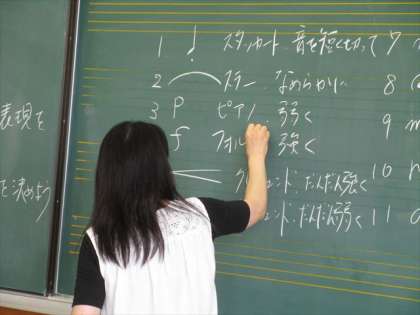 1 スタッカート、音を短く切って 7
2 スラー なめらかに 8
3 P ピアノ 弱く 9 m
f フォル 強く
ェンド だんだん強く 10
ェンド だんだん弱く 11
表現を
を決めよう